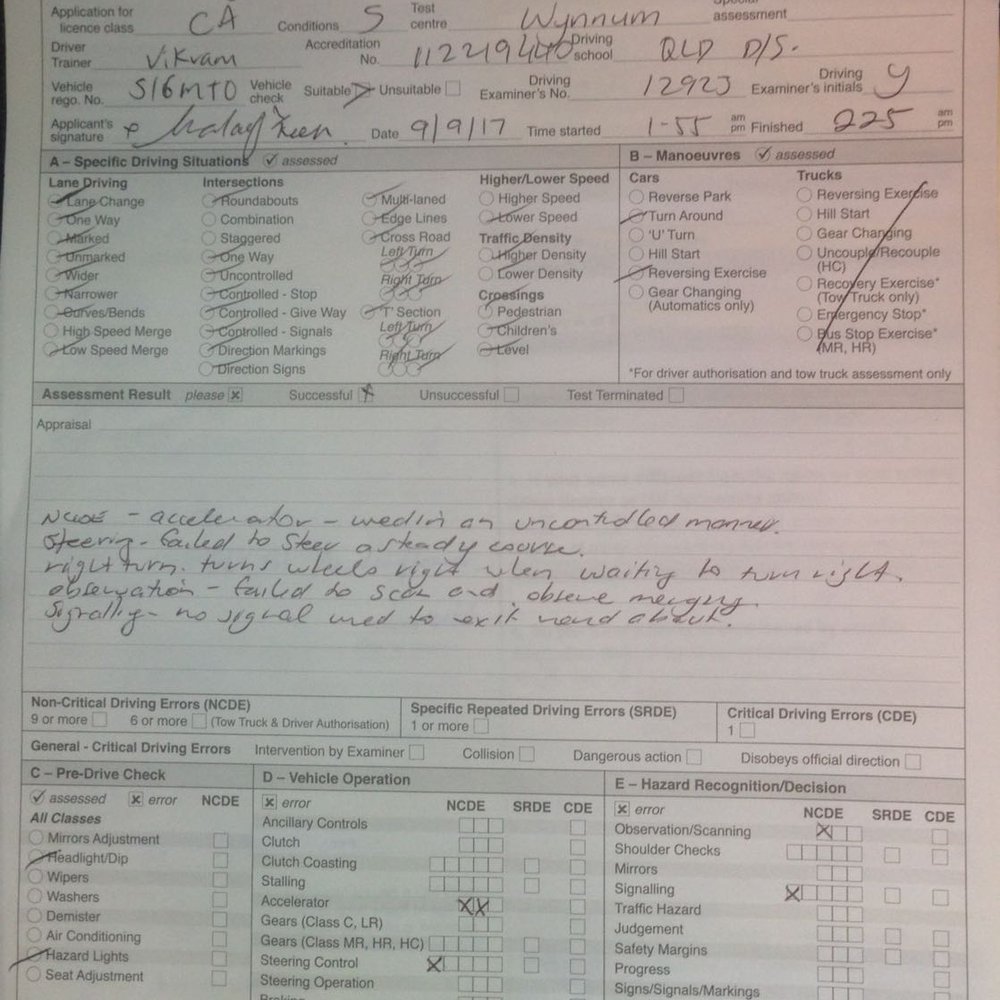 Application for licence class CA Conditions S Test centre Wynnum Special assessment
Driver Trainer Vikram Accreditation No. Driving school QLD D/S.
Vehicle rego. No. 516MTO Vehicle check Suitable Unsuitable Driving Examiner's No. Driving Examiner's initials
Applicant's signature Date 9/9/17 Time started 1-55 am pm Finished 225 am pm
A – Specific Driving Situations ✓ assessed
Lane Driving
Lane Change
One Way
Marked
Unmarked
Wider
Narrower
Curves/Bends
High Speed Merge
Low Speed Merge
Intersections
Roundabouts
Combination
Staggered
One Way
Uncontrolled
Controlled - Stop
Controlled - Give Way
Controlled - Signals
Direction Markings
Direction Signs
Multi-laned
Edge Lines
Cross Road
Left Turn
Right Turn
'T' Section
Left Turn
Right Turn
Higher/Lower Speed
Higher Speed
Lower Speed
Traffic Density
Higher Density
Lower Density
Crossings
Pedestrian
Children's
Level
B – Manoeuvres ✓ assessed
Cars
Reverse Park
Turn Around
'U' Turn
Hill Start
Reversing Exercise
Gear Changing
(Automatics only)
Trucks
Reversing Exercise
Hill Start
Gear Changing
Uncouple/Recouple
(HC)
Recovery Exercise*
(Tow Truck only)
Emergency Stop*
Bus Stop Exercise*
(MR, HR)
*For driver authorisation and tow truck assessment only
Assessment Result please x Successful x Unsuccessful Test Terminated
Appraisal
NCDE - accelerator - used in an uncontrolled manner.
Steering - failed to steer a steady course.
right turn. turns wheels right when waiting to turn right.
observation - failed to scan and observe merging.
Signalling - no signal used to exit round about.
Non-Critical Driving Errors (NCDE)
9 or more 6 or more (Tow Truck & Driver Authorisation)
Specific Repeated Driving Errors (SRDE)
1 or more
Critical Driving Errors (CDE)
1
General - Critical Driving Errors Intervention by Examiner Collision Dangerous action Disobeys official direction
C – Pre-Drive Check
✓ assessed x error NCDE
All Classes
Mirrors Adjustment
Headlight/Dip
Wipers
Washers
Demister
Air Conditioning
Hazard Lights
Seat Adjustment
D – Vehicle Operation
x error NCDE SRDE CDE
Ancillary Controls
Clutch
Clutch Coasting
Stalling
Accelerator XX
Gears (Class C, LR)
Gears (Class MR, HR, HC)
Steering Control X
Steering Operation
Braking
E – Hazard Recognition/Decision
x error NCDE SRDE CDE
Observation/Scanning X
Shoulder Checks
Mirrors
Signalling X
Traffic Hazard
Judgement
Safety Margins
Progress
Signs/Signals/Markings